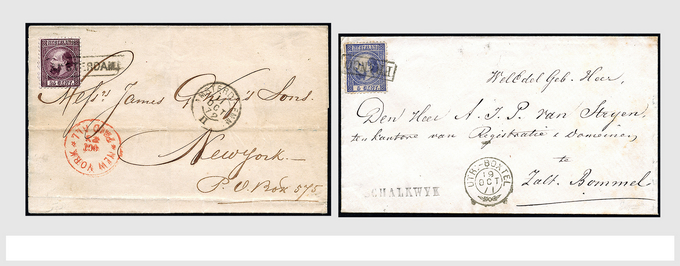 NEDERLAND
25 CENT.
AMSTERDAM
Mess.rs James
Sons.
AMSTERDAM
OCT
72
II
New York
P.O. Box 575
NEW YORK
PAID ALL
OCT
NEDERLAND
5 CENT.
FRANCO
WelEdel Geb. Heer,
Den Heer A. J. P. van Stryen
kantore van Registratie & Domeinen,
te
Zalt-Bommel
UTR-BOXTEL
19
OCT
71
SCHALKWYK